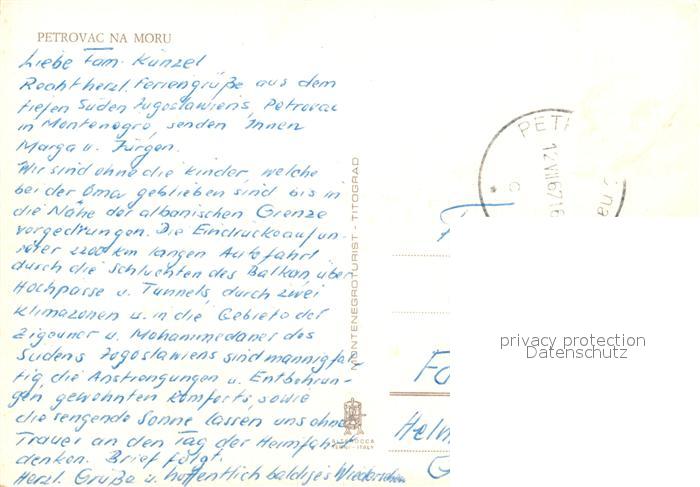 PETROVAC NA MORU
Liebe Fam. Künzel
Recht herzl. Feriengrüße aus dem
tiefen Süden Jugoslawiens, Petrovac
in Montenegro, senden Ihnen
Marga u. Jürgen.
Wir sind ohne die Kinder, welche
bei der Oma geblieben sind bis in
die Nähe der albanischen Grenze
vorgedrungen. Die Eindrücke auf un-
serer 2200 km langen Autofahrt
durch die Schluchten des Balkan, über
Hochpässe u. Tunnels, durch zwei
Klimazonen u. in die Gebiete der
Zigeuner u. Mohammedaner des
Südens Jugoslawiens sind mannigfal-
tig, die Anstrengungen u. Entbehrun-
gen gewohnten Komforts, sowie
die sengende Sonne lassen uns ohne
Trauer an den Tag der Heimfahrt
denken. Brief folgt.
Herzl. Grüße u. hoffentlich baldiges Wiedersehen
MONTENEGROTURIST - TITOGRAD
PET
12.VII.67.16
na
C
ITALY
F
Fa
Helm
G
privacy protection
Datenschutz